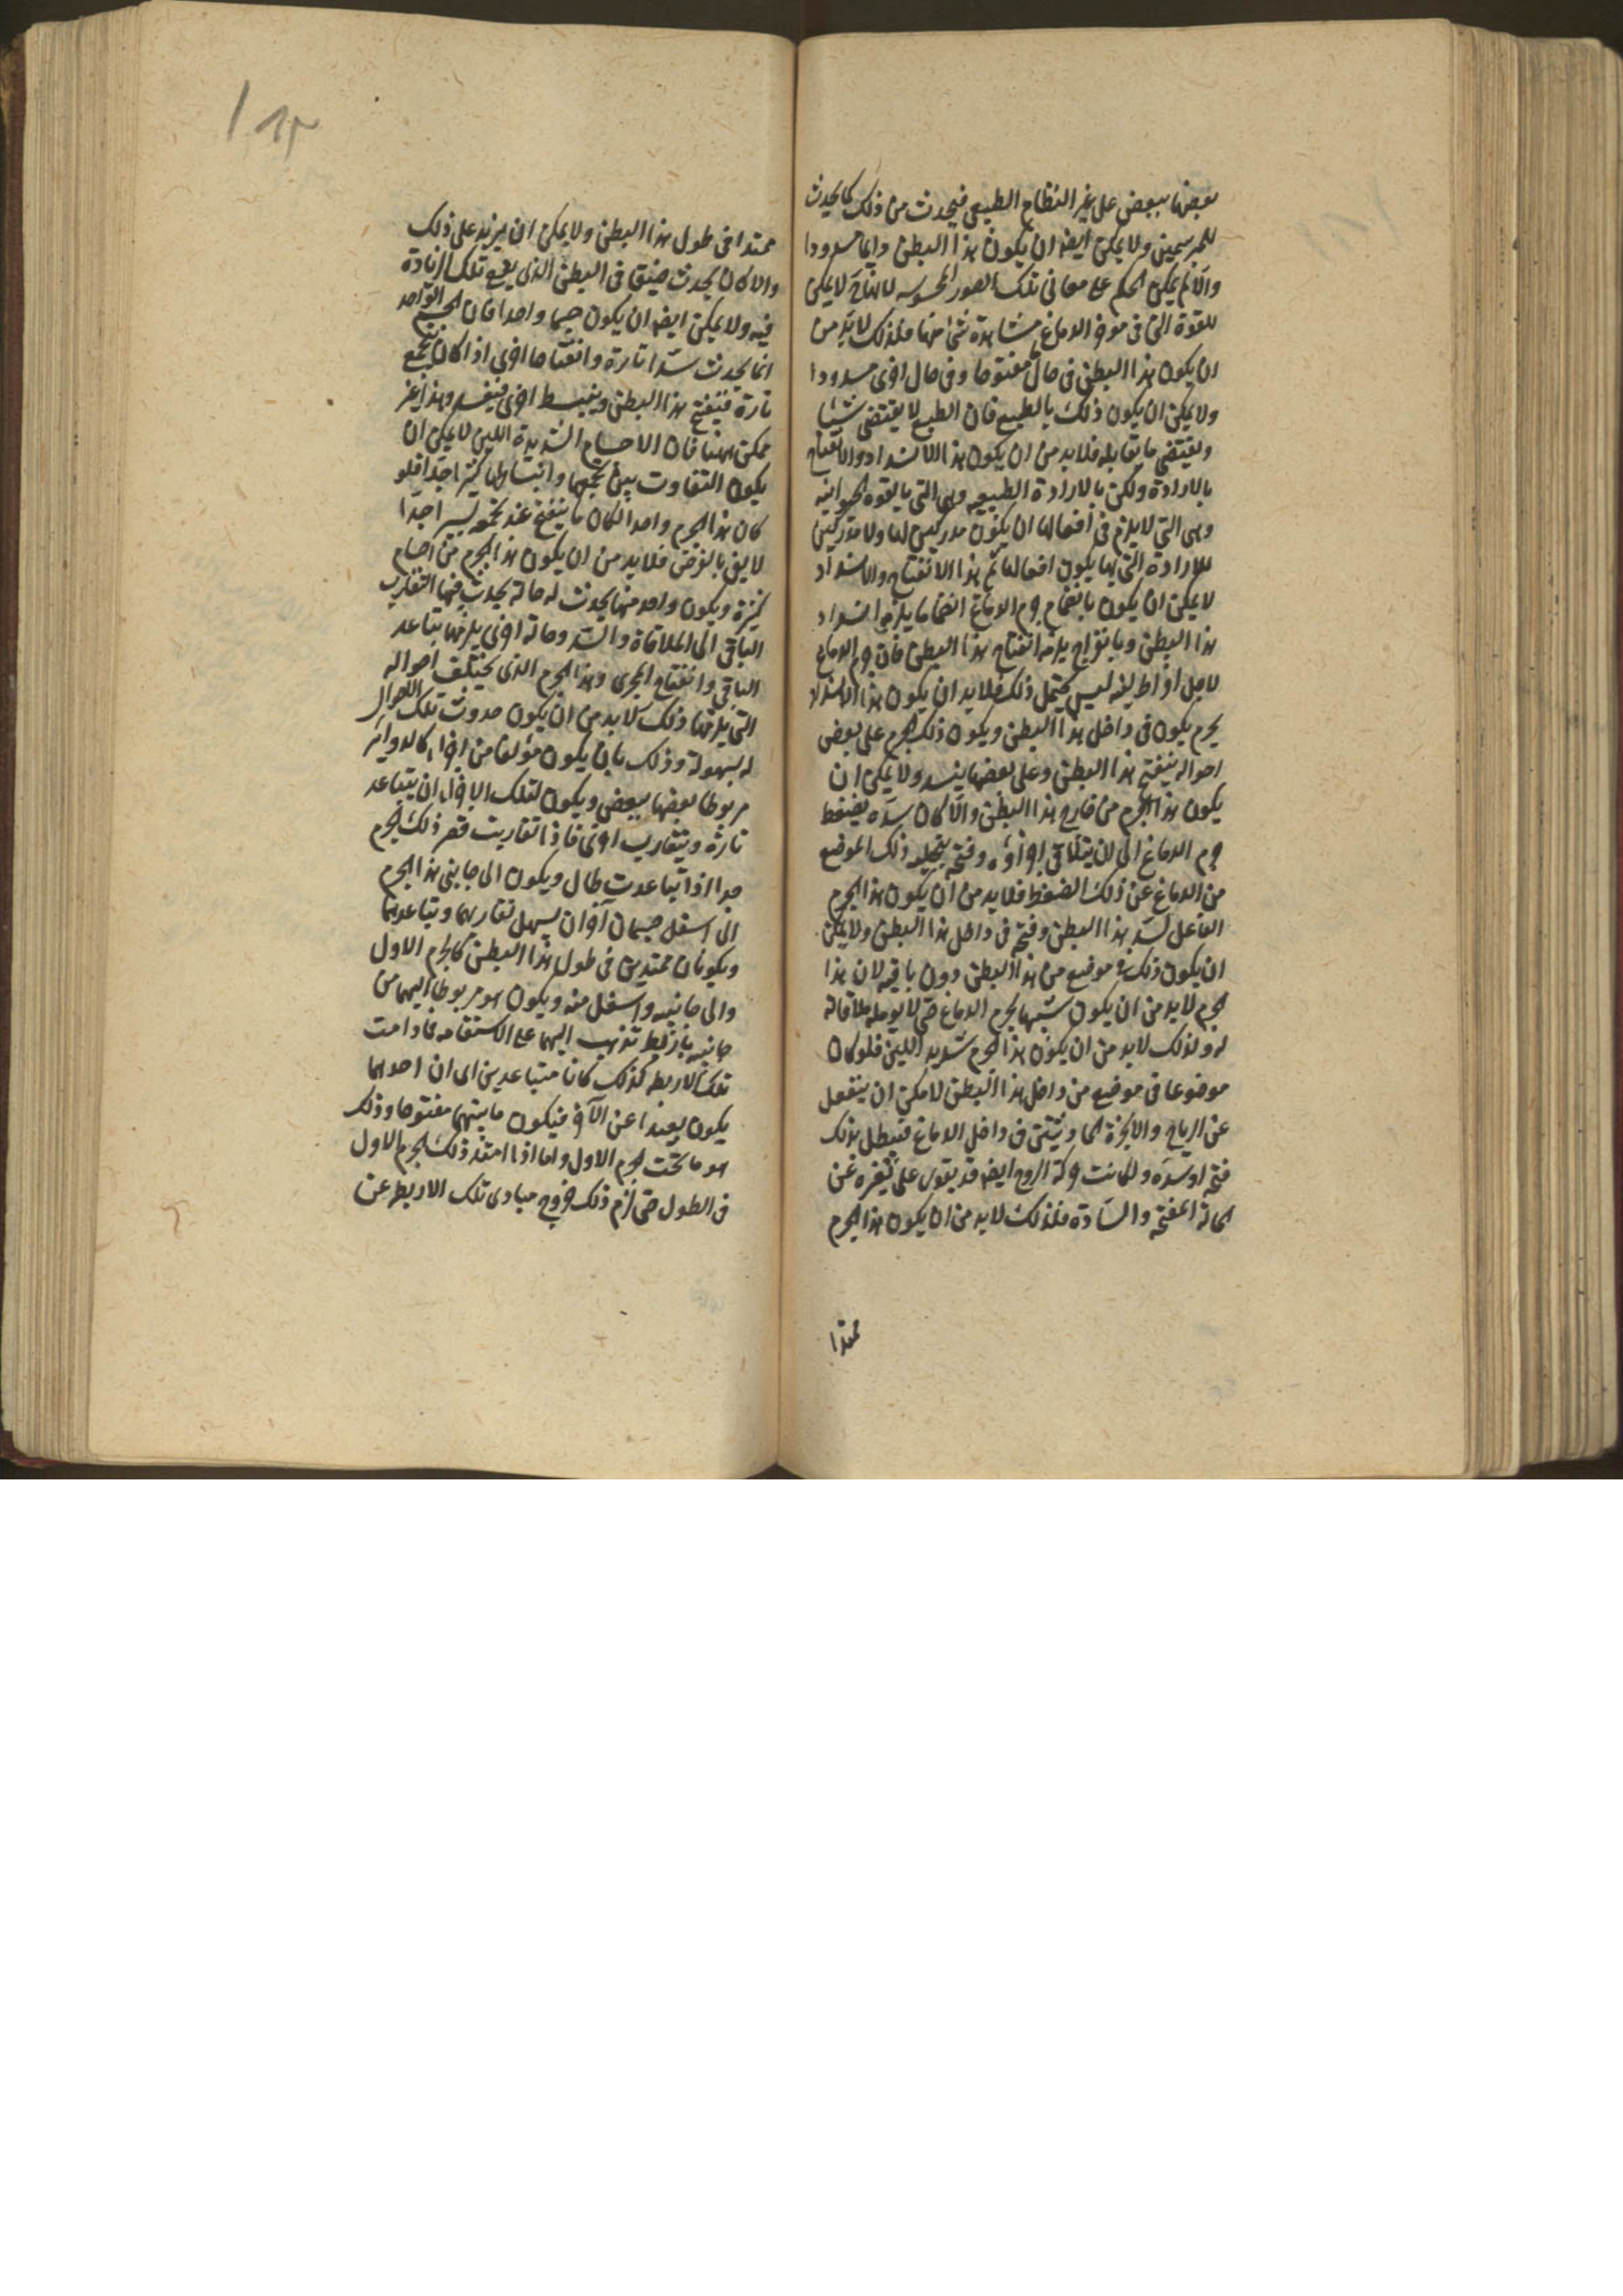 بعضها ببعض على غير النظام الطبيعى فيحدث من ذلك كما يحدث
للمبرسمين ولا يمكن ايضا ان يكون هذا البطن دايما مسدودا
والا لم يمكن الحكم على معانى تلك الصور المحسوسه لانها ح لا يمكن
للقوة التى فى موخر الدماغ مشاهدة شئ منها فلذلك لا بد من
ان يكون هذا البطن فى حال مفتوحا وفى حال اخرى مسدودا
ولا يمكن ان يكون ذلك بالطبع فان الطبع لا يقتضى شيئا
ويقتضى ما يقابله فلا بد من ان يكون هذا الانسداد والانفتاح
بالارادة ولكن بالارادة الطبيعيه وهى التى بالقوه الحيوانيه
وهى التى لا يلزم فى افعالها ان يكون مدركين لها ولا مدركين
للارادة التى بها يكون افعالها ثم هذا الانفتاح والانسداد
لا يمكن ان يكون بانضمام جرم الدماغ انضماما يلزمه انسداد
هذا البطن وبانفراج يلزمه انفتاح هذا البطن فان جرم الدماغ
لاجل افراط لينه ليس يحتمل ذلك فلا بد ان يكون هذا الانسداد
بجرم يكون فى داخل هذا البطن ويكون ذلك الجرم على بعض
احواله ينفتح هذا البطن وعلى بعضها ينسد ولا يمكن ان
يكون هذا الجرم من خارج هذا البطن والا كان سده بضغط
جرم الدماغ الى ان يتلاقى اجزاؤه وفتحه بتخليه ذلك الموضع
من الدماغ عن ذلك الضغط فلا بد من ان يكون هذا الجرم
الفاعل لسد هذا البطن وفتحه فى داخل هذا البطن ولا يمكن
ان يكون ذلك فى موضع من هذا البطن دون باقيه لان هذا
الجرم لا بد من ان يكون شبيها بجرم الدماغ حتى لا يولمه ملاقاته
له ولذلك لا بد من ان يكون هذا الجرم شديد اللين فلو كان
موضوعا فى موضع من داخل هذا البطن لامكن ان ينفعل
عن الرياح والابخرة الحادثتين فى داخل الدماغ فيبطل بذلك
فتحه او سده ولكانت حركة الروح ايضا قد يقوى على تغيره عن
الحالة المفتحة والسادة فلذلك لا بد من ان يكون هذا الجرم
ممتدا
ممتدا فى طول هذا البطن ولا يمكن ان يزيد على ذلك
والا كان يحدث ضيق فى البطن الذى يقع تلك الزيادة
فيه ولا يمكن ايضا ان يكون جسما واحدا فان الجسم الواحد
انما يحدث سدا تارة وانفتاحا اخرى اذا كان يجتمع
تارة فينفتح هذا البطن وينبسط اخرى فينسد وهذا غير
ممكن ههنا فان الاجسام الشديدة اللين لا يمكن ان
يكون التفاوت بين تجمعها وانبساطها كثيرا جدا فلو
كان هذا الجرم واحدا لكان ما ينفتح عند تجمعه يسيرا جدا
لا يفى بالغرض فلا بد من ان يكون هذا الجرم من اجسام
كثيرة ويكون واحد منها يحدث له حالة يحدث فيها التقارب
الباقى الى الملاقاة والسد وحالة اخرى يلزمها تباعد
الباقى وانفتاح المجرى وهذا الجرم الذى يختلف احواله
التى يلزمها ذلك لا بد من ان يكون حدوث تلك الاحوال
له بسهولة وذلك بان يكون مؤلفا من اجزاء كالدوائر
مربوطا بعضها ببعض ويكون لتلك الاجزاء ان يتباعد
تارة ويتقارب اخرى فاذا تقاربت قصر ذلك الجرم
جدا اذا تباعدت طال ويكون الى جانبى هذا الجرم
الى اسفل جسمان آخران يسهل تقاربهما وتباعدهما
ويكونان ممتدين فى طول هذا البطن كالجرم الاول
والى جانبيه واسفل منه ويكون هو مربوطا اليهما من
جانبيه باربطه تذهب اليهما على الاستقامه فما دامت
تلك الاربطه كذلك كانا متباعدين اى ان احدهما
يكون بعيدا عن الآخر فيكون ما بينهما مفتوحا وذلك
هو ما تحت الجرم الاول واما اذا امتد ذلك الجرم الاول
فى الطول حتى لزم ذلك خروج مبادى تلك الاربطه عن